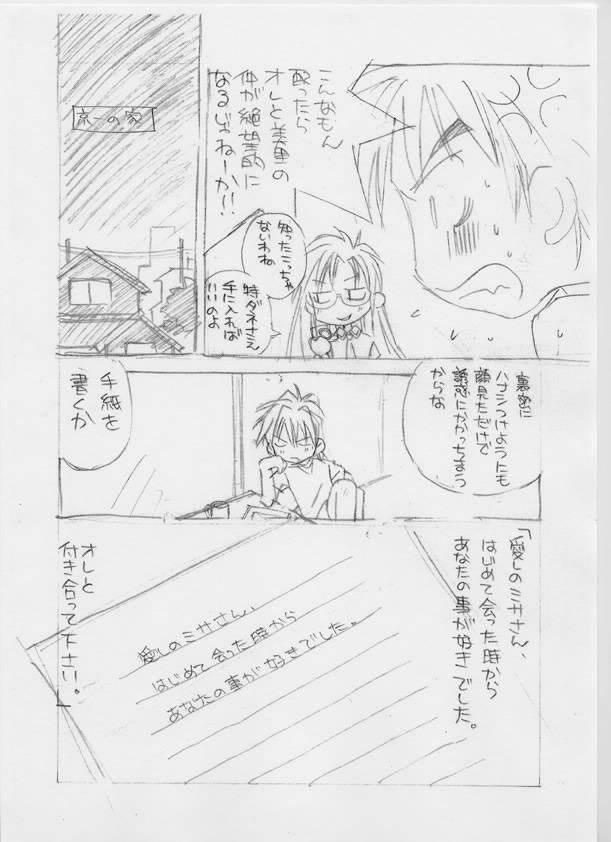 こんなもん
配ったら
オレと美里の
仲が絶望的に
なるじゃねーか!!
知ったこっちゃ
ないわね
特ダネさえ
手に入れば
いいのよ
京一の家
裏密に
ハナシつけようにも
顔見ただけで
誘惑にかかっちまう
からな
手紙を
書くか
「愛しのミサさん、
はじめて会った時から
あなたの事が好きでした。
愛しのミサさん、
はじめて会った時から
あなたの事が好きでした。
オレと
付き合って下さい。」